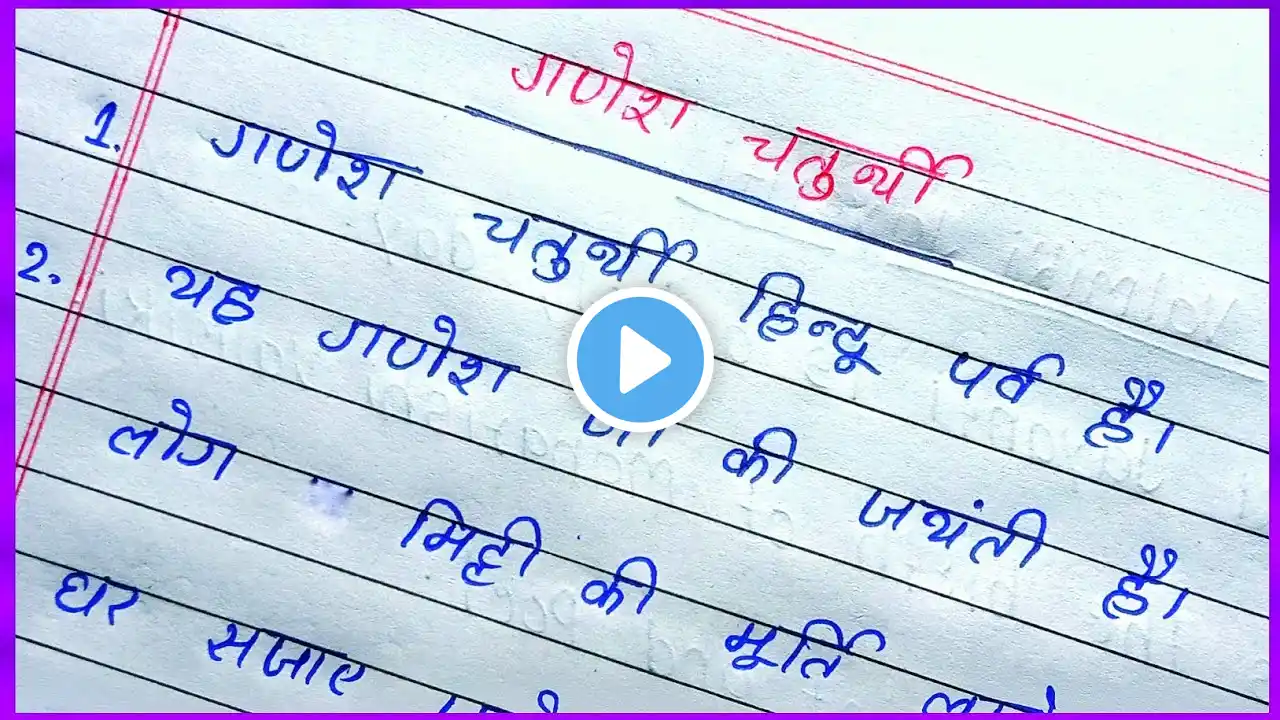 गणेश चतुर्थी
1. गणेश चतुर्थी हिन्दू पर्व है।
2. यह गणेश की जयंती है।
लोग मिट्टी की मूर्ति
घर सजाए